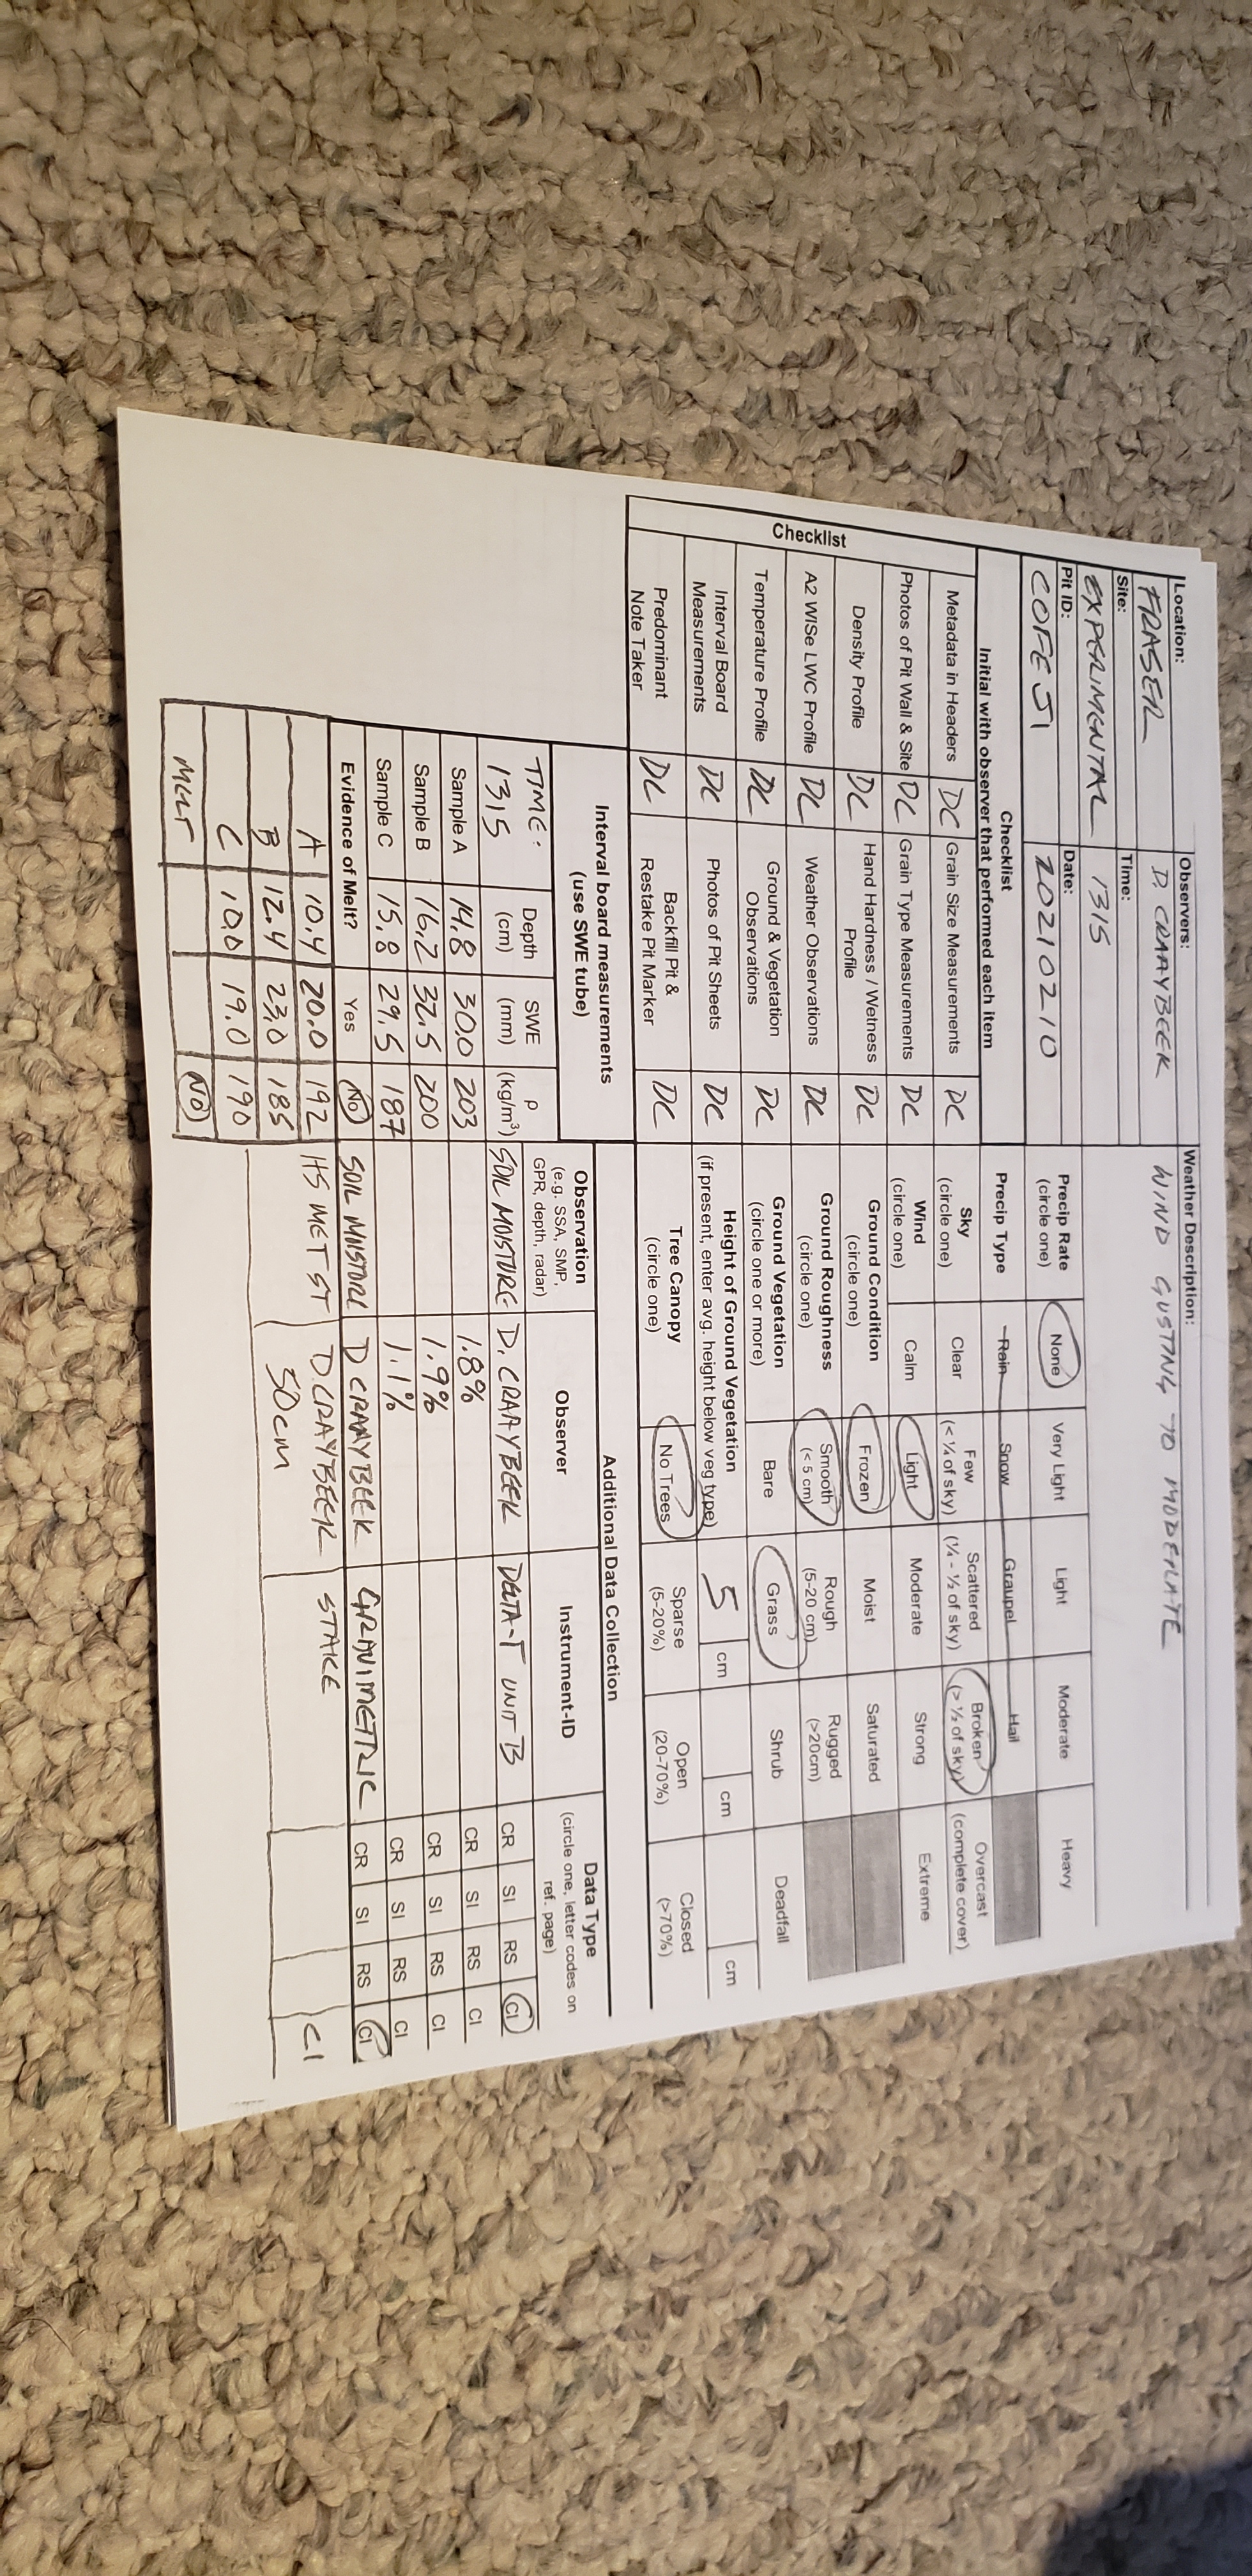 Location:
FRASER
Observers:
D. CRAAYBEEK
Weather Description:
WIND GUSTING TO MODERATE
Site:
EXPERIMENTAL
Time:
1315
Pit ID:
COFEJ1
Date:
20210210
Precip Rate
(circle one)
None Very Light Light Moderate Heavy
Checklist
Initial with observer that performed each item
Precip Type Rain Snow Graupel Hail
Checklist
Metadata in Headers DC Grain Size Measurements DC
Sky
(circle one)
Clear
Few
(< ¼ of sky)
Scattered
(¼ - ½ of sky)
Broken
(> ½ of sky)
Overcast
(complete cover)
Photos of Pit Wall & Site DC Grain Type Measurements DC
Wind
(circle one)
Calm Light Moderate Strong Extreme
Density Profile DC
Hand Hardness / Wetness
Profile
DC
Ground Condition
(circle one)
Frozen Moist Saturated
A2 WISe LWC Profile DC Weather Observations DC
Ground Roughness
(circle one)
Smooth
(< 5 cm)
Rough
(5-20 cm)
Rugged
(>20cm)
Temperature Profile DC
Ground & Vegetation
Observations
DC
Ground Vegetation
(circle one or more)
Bare Grass Shrub Deadfall
Interval Board
Measurements
DC Photos of Pit Sheets DC
Height of Ground Vegetation
(if present, enter avg. height below veg type)
5 cm cm cm
Predominant
Note Taker
DC
Backfill Pit &
Restake Pit Marker
DC
Tree Canopy
(circle one)
No Trees
Sparse
(5-20%)
Open
(20-70%)
Closed
(>70%)
Interval board measurements
(use SWE tube)
TIME:
1315
Depth
(cm)
SWE
(mm)
ρ
(kg/m³)
Sample A 14.8 30.0 203
Sample B 16.2 32.5 200
Sample C 15.8 29.5 187
Evidence of Melt? Yes No
A 10.4 20.0 192
B 12.4 23.0 185
C 10.0 19.0 190
MELT NO
Additional Data Collection
Observation
(e.g. SSA, SMP,
GPR, depth, radar)
Observer
Instrument-ID
Data Type
(circle one, letter codes on
ref. page)
SOIL MOISTURE D. CRAAYBEEK DELTA-T UNIT B CR SI RS CI
1.8% CR SI RS CI
1.9% CR SI RS CI
1.1% CR SI RS CI
SOIL MOISTURE D CRAAYBEEK GRAVIMETRIC CR SI RS CI
HS MET ST D. CRAYBEEK STAKE CI
50cm